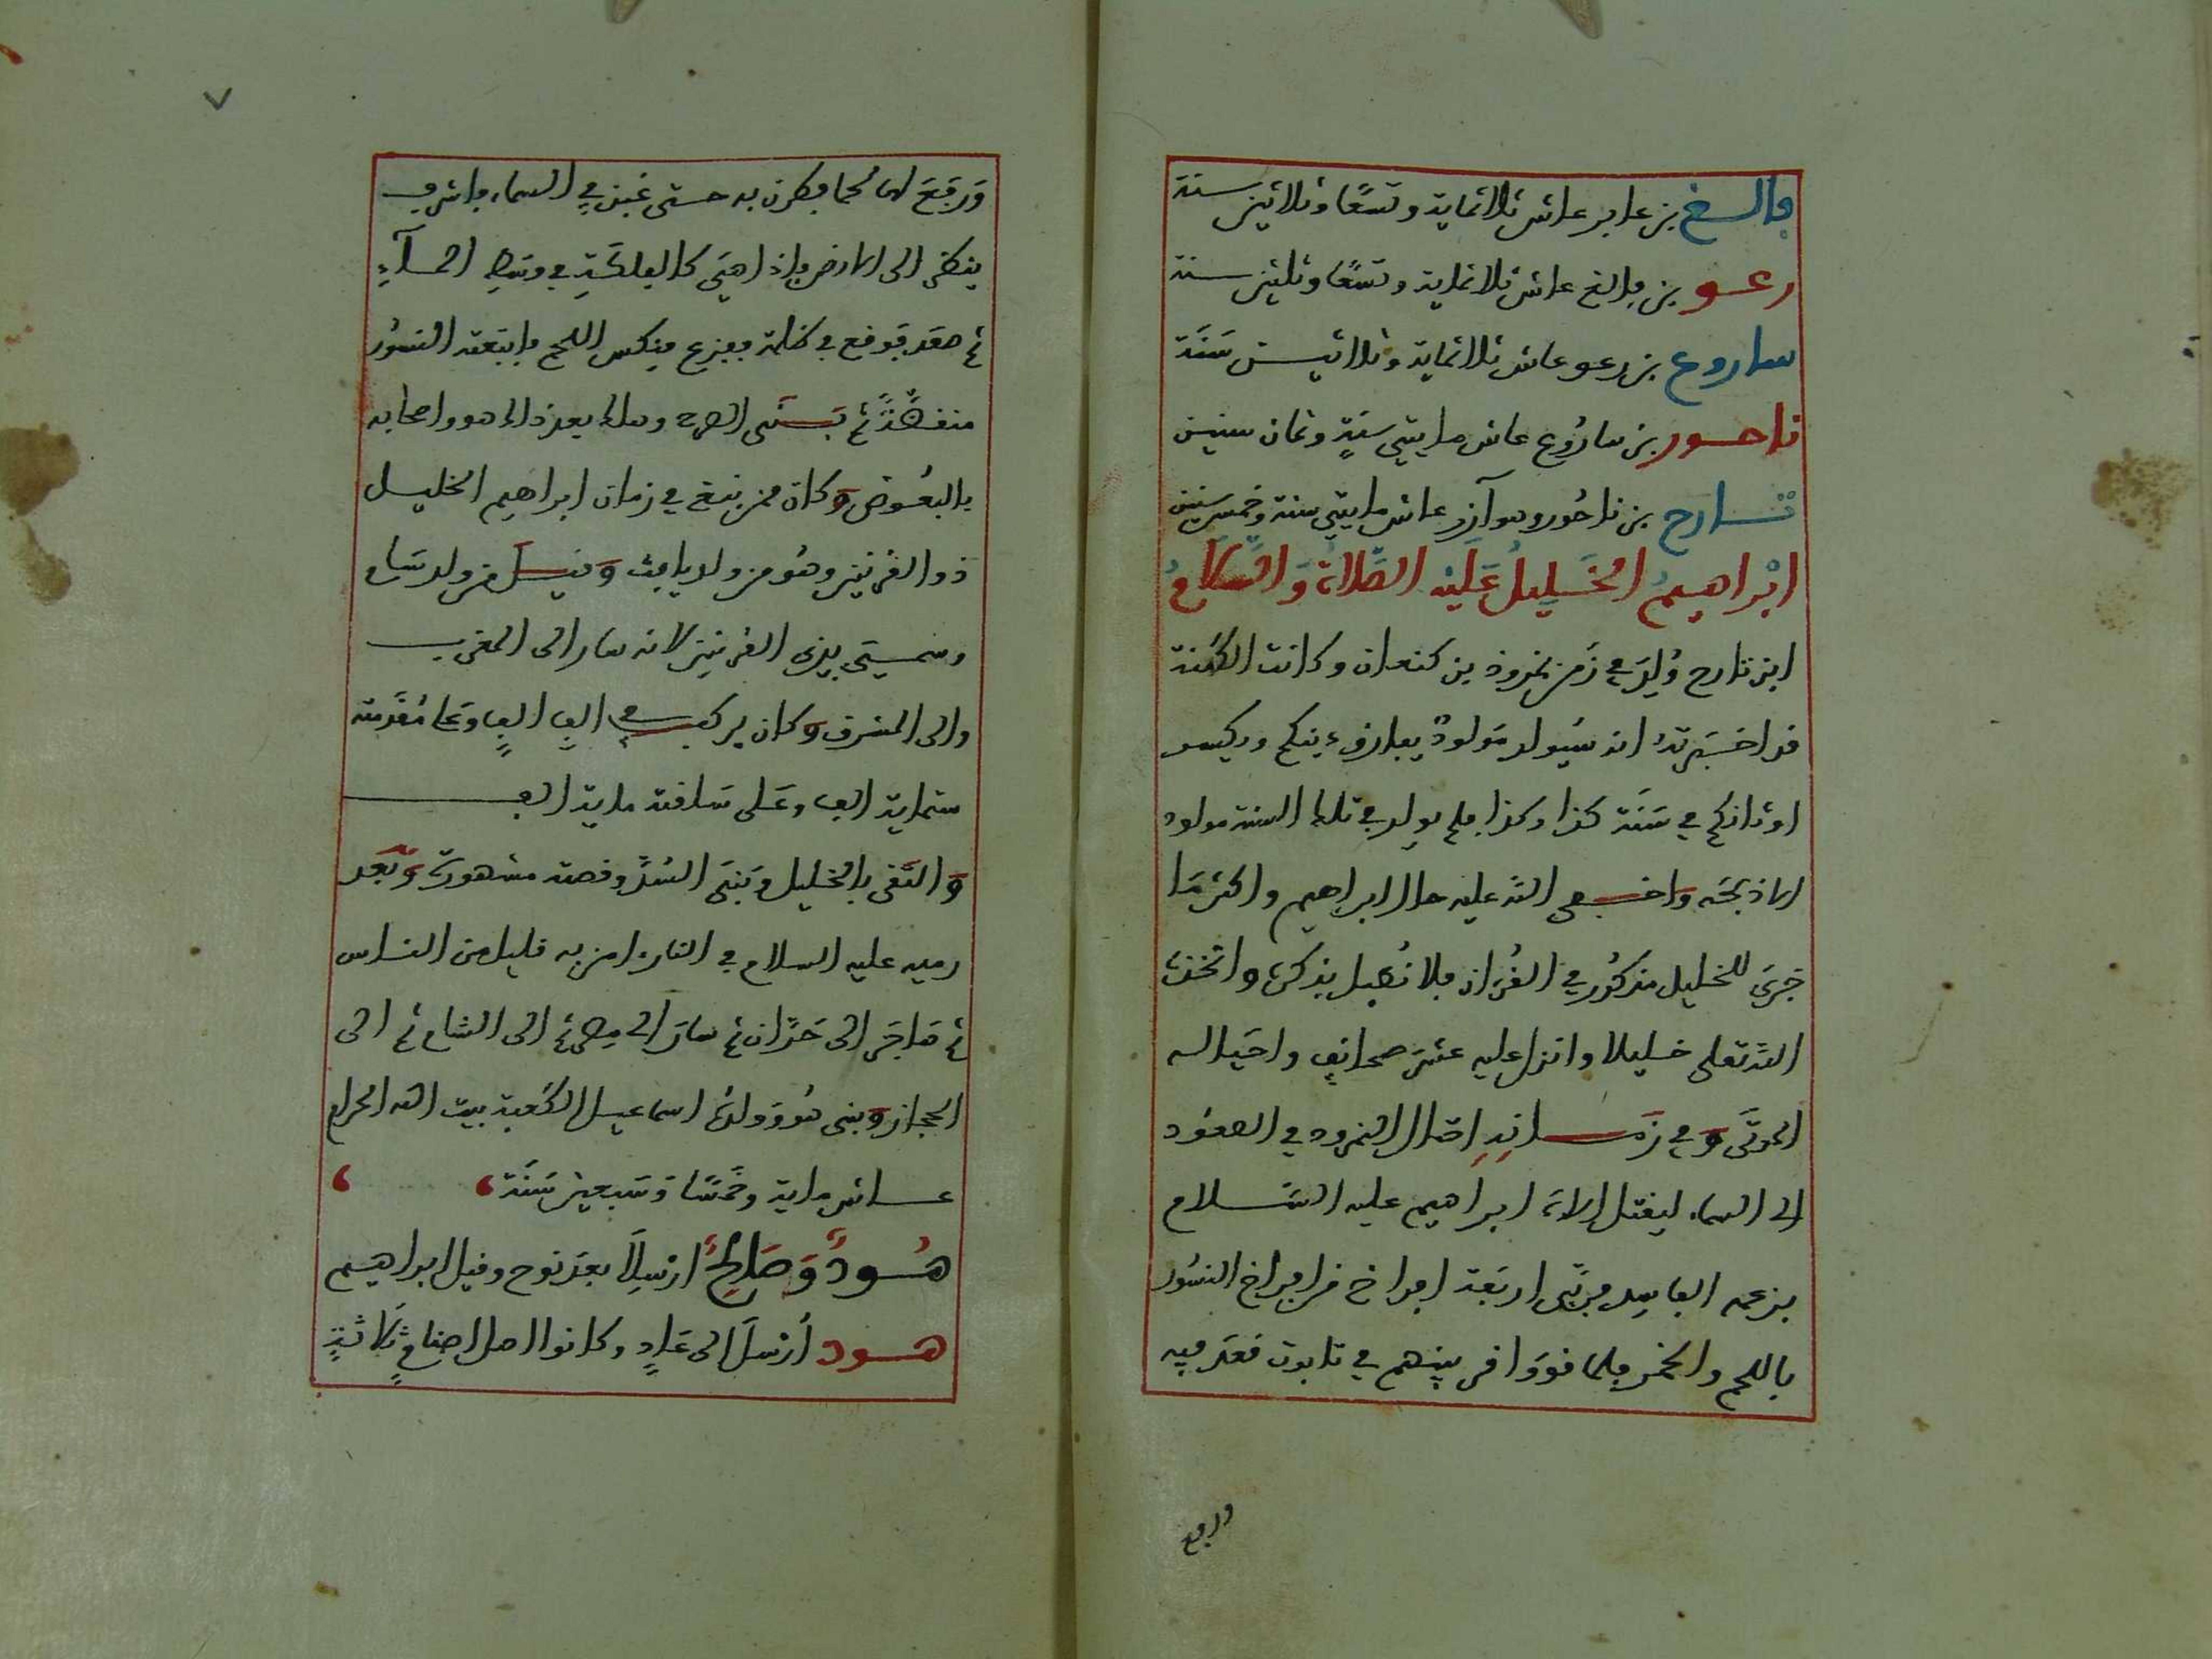 فالغ بن عابر عاش ثلاثماية وتسعًا وثلاثين سنة
رعو بن فالغ عاش ثلاثماية وتسعًا وثلثين سنة
ساروع بن رعو عاش ثلاثماية وثلاثين سَنَة
ناحور بن ساروع عاش مايتي سنةٍ وثمان سنين
تارح بن ناحُور وهو آزر عاش مايتي سنة وخمس سنين
ابْراهيمُ الخَليلُ عَلَيْه الصَّلاةُ وَالسَّلامُ
ابن تارح وُلِدَ في زَمن نمروذ بن كنعان وكانت الكهنة
قد اخبَرتهُ انه سَيُولد مَولودٌ يفارق دينكم ويكسر
اوثانكم في سَنَة كذا وكذا فلم يولد في تلك السنة مولود
الا ذبحَه واخفى الله عليه حال ابراهيم واكثر مَا
جَرى للخليل مذكُور في القُرءان فلا نُطيل بذكره واتخذه
الله تعلى خليلا وانزل عليه عشرَ صحائف واحيَا له
الموتَى وَفي زَمانِهِ احتال النمرود في الصعُود
الى السماء ليقتل إلاهَ ابراهيم عليه السَّلام
بزعمه الفاسِد فربَّى اربَعة افراخ من افراخ النسُور
باللحم والخمر فلما قووا قرنهم في تابوت فقعَد فيه
ورفع
وَرَفَعَ لها لحما فطرن به حتى غبن في السماء فاشرف
ينظر الى الارض فاذا هيَ كالفلكَةِ في وسَطِ المآءِ
ثم صعَد فوقع في ظلمة ففزع فنكس اللحم فاتبعَته النسُور
منقضَّةً ثم بَنَى الصرح وهلك بعد ذلك هو واصحابه
بالبعُوض وَكان ممن نبغ في زمان ابراهيم الخليل
ذو القرنين وهُو من ولد يافث وَقيلَ من ولد سَام
وسميَ بذي القرنين لانه سار الى المغرب
والى المشرق وَكان يركب في الفِ الفٍ وعَلى مُقدَّمته
ستماية الف وعَلى سَاقته ماية الف
وَالتقى بالخليل وبَنَى السُدَّ وقصته مشهورة وَبَعد
رميه عليه السلام في النار ءامن به قليل من الناس
ثم هَاجَر الى حَرَّان ثم سَارَ الى مصر ثم الى الشام ثم الى
الحجاز وَبنى هُوَ وَولدُه اسماعيل الكعبة بيت الله الحرام
عاش ماية وخمسًا وَسَبعين سَنَة
هُودٌ وَصَالِحٌ ارْسِلَا بعدَ نوح وقبل ابراهيم
هود أرْسلَ الى عَادٍ وكانوا اهل اصنامٍ ثلَاثةٍ